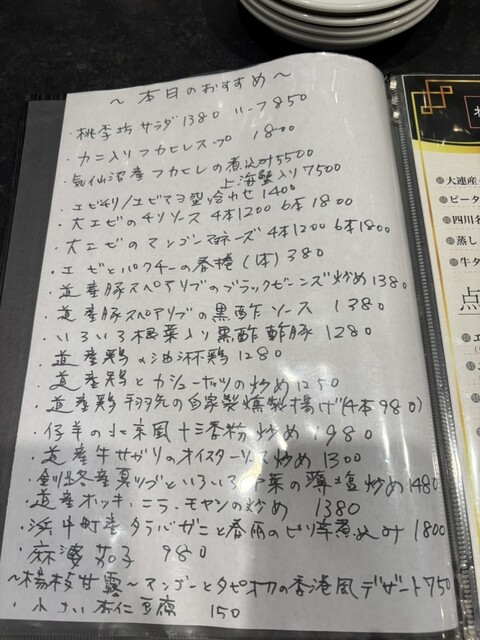 ～本日のおすすめ～
・桃李坊サラダ1380 ハーフ850
・カニ入りフカヒレスープ 1800
・気仙沼産フカヒレの煮込み5500
上海蟹入り7500
・エビチリ/エビマヨ 1400
・大エビのチリソース 4本1200 6本1800
・大エビのマンゴーマヨネーズ 4本1200 6本1800
・エビとパクチーの春捲(1本)380
・道産豚スペアリブのブラックビーンズ炒め1380
・道産豚スペアリブの黒酢ソース 1380
・いろいろ根菜入り黒酢酢豚 1280
・道産鶏の油淋鶏1280
・道産鶏とカシューナッツの炒め1250
・道産鶏手羽先の自家製燻製揚げ(4本980)
・仔羊の北京風十三香粉炒め 1980
・道産牛サガリのオイスターソース炒め1300
・釧路産真ツブといろいろ野菜の薄塩炒め1480
・道産ホッキ、ニラ、モヤシの炒め 1380
・浜中町産タラバガニと春雨のピリ辛煮込み1800
・麻婆茄子 980
～楊枝甘露～マンゴーとタピオカの香港風デザート750
・小さい杏仁豆腐 150
・大連産
・ピータ
・四川名
・蒸し
・牛タ
点